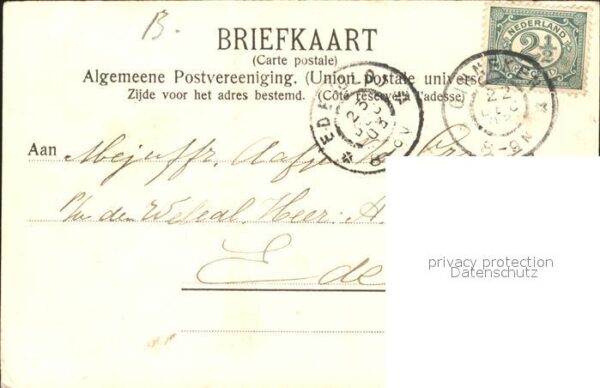 B.
NEDERLAND
2½
BRIEFKAART
(Carte postale)
Algemeene Postvereeniging. (Union postale univers
Zijde voor het adres bestemd. (Côté réservé à l'adresse)
EDE
Aan Mejuffr. Aafje
den WelEd. Heer A
Ede
privacy protection
Datenschutz